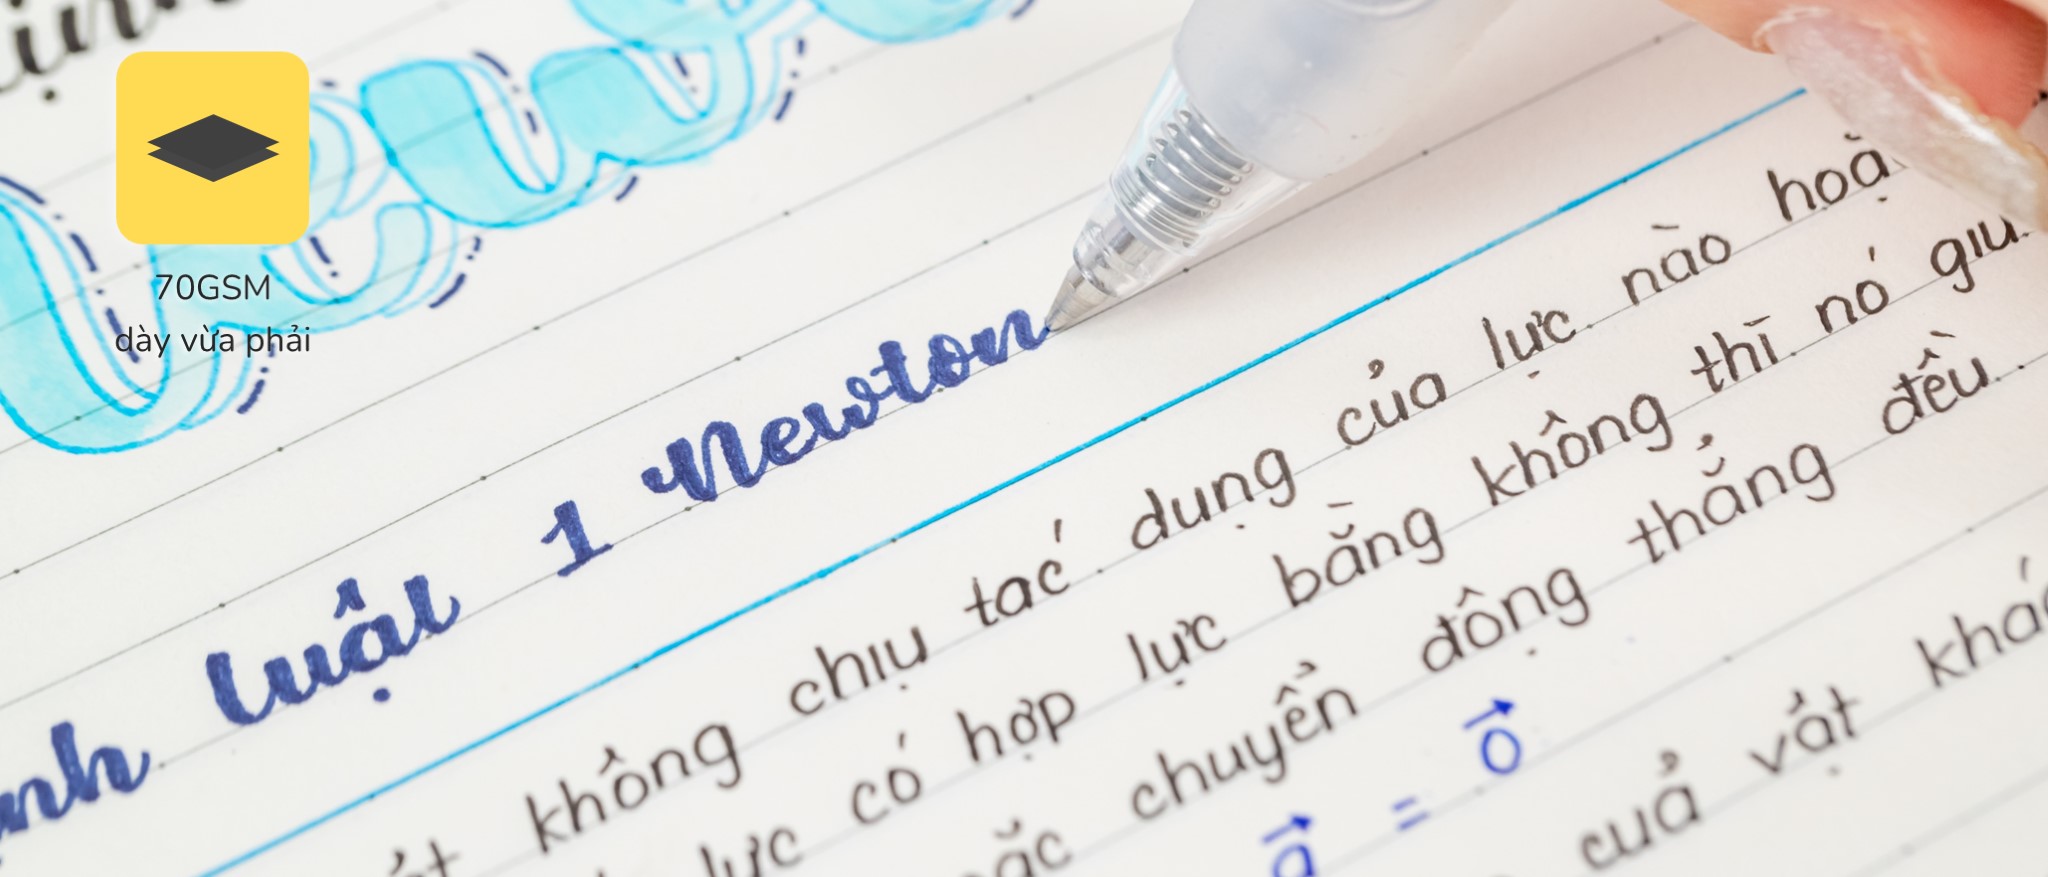 70GSM
dày vừa phải
luật 1 Newton
không chịu tác dụng của lực nào
lực có hợp lực bằng không thì nó
chuyển động thẳng đều
a⃗ = 0⃗
của vật